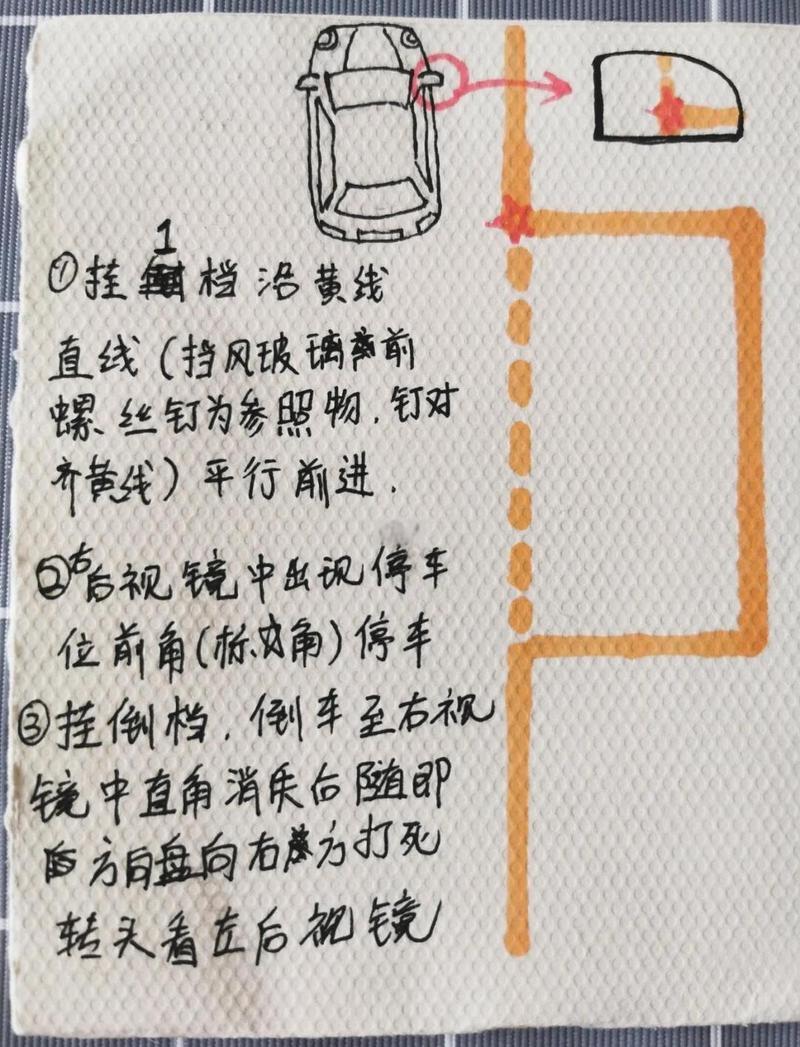 1
①挂档沿黄线
直线(挡风玻璃前
螺丝钉为参照物,钉对
齐黄线)平行前进.
②右后视镜中出现停车
位前角(标角)停车
③挂倒档,倒车至右视
镜中直角消失后随即
方向盘向右方打死
转头看左后视镜